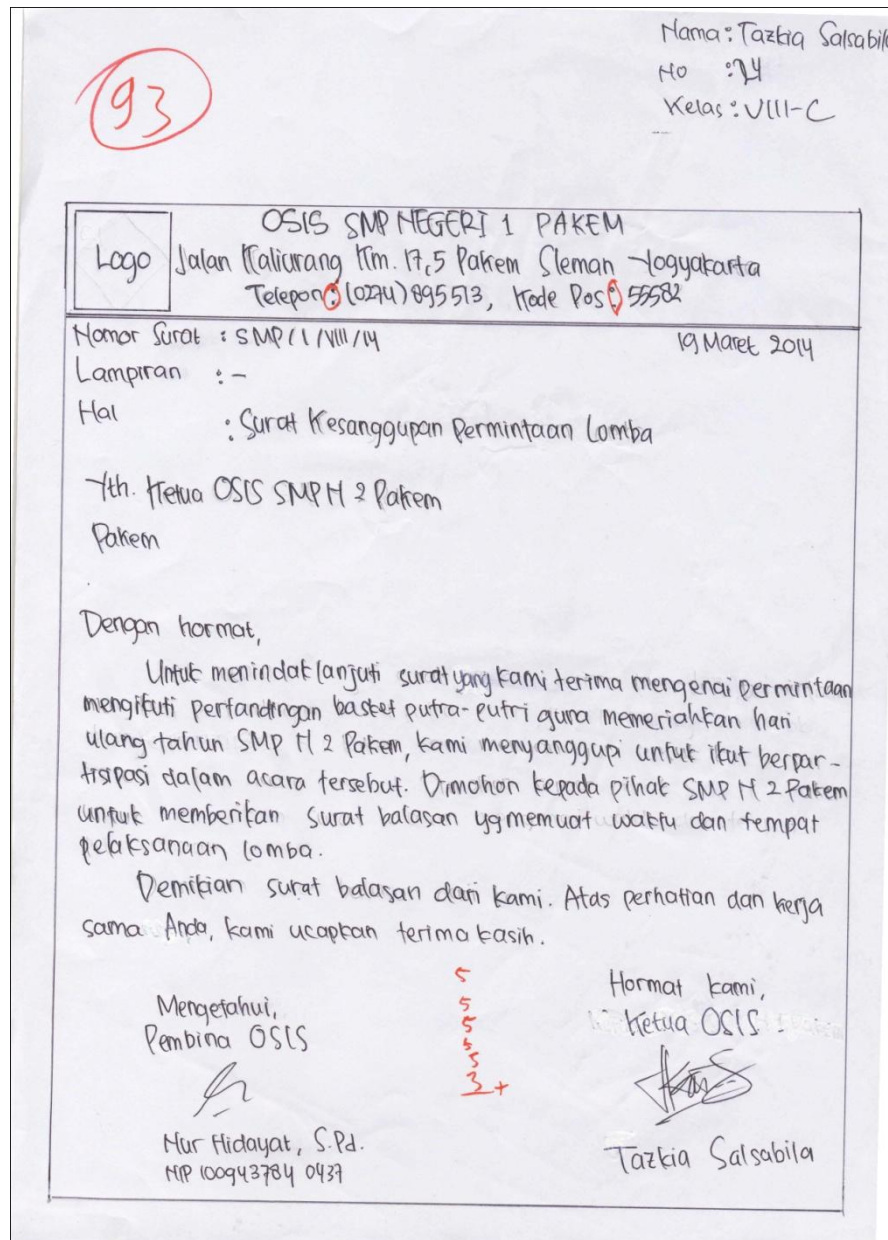 Nama : Tazkia Salsabila
No : 24
Kelas : VIII-C
93
OSIS SMP NEGERI 1 PAKEM
Logo
Jalan Kaliurang Km. 17,5 Pakem Sleman Yogyakarta
Telepon : (0274) 895513, Kode Pos : 55582
Nomor Surat : SMP / 1 / VIII / 14
19 Maret 2014
Lampiran : -
Hal : Surat Kesanggupan Permintaan Lomba
Yth. Ketua OSIS SMP N 2 Pakem
Pakem
Dengan hormat,
Untuk menindak lanjuti surat yang kami terima mengenai permintaan
mengikuti pertandingan basket putra-putri guna memeriahkan hari
ulang tahun SMP N 2 Pakem, kami menyanggupi untuk ikut berpar-
tisipasi dalam acara tersebut. Dimohon kepada pihak SMP N 2 Pakem
untuk memberikan surat balasan yg memuat waktu dan tempat
pelaksanaan lomba.
Demikian surat balasan dari kami. Atas perhatian dan kerja
sama Anda, kami ucapkan terima kasih.
5
5
5
5
5
3 +
Mengetahui,
Pembina OSIS
Nur Hidayat, S.Pd.
NIP 100943784 0437
Hormat kami,
Ketua OSIS
Tazkia Salsabila